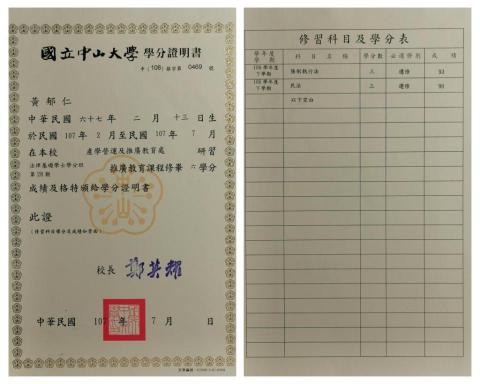 國立中山大學 學分證明書
中(106)推字第 0469 號
黃郁仁
中華民國 六十七年 二月 十三日生
於民國 107年 2月至民國 107年 7月
在本校 產學營運及推廣教育處 研習
法律基礎學士學分班
第128期 推廣教育課程修畢 六 學分
成績及格特頒給學分證明書
此證
(修習科目學分及成績如背面)
校長 鄭英耀
中華民國 107 年 7 月 日
修習科目及學分表
學年度
學期 科目名稱 學分數 必選修別 成績
106學年度
下學期 強制執行法 三 選修 90
106學年度
下學期 民法 三 選修 93
以下空白